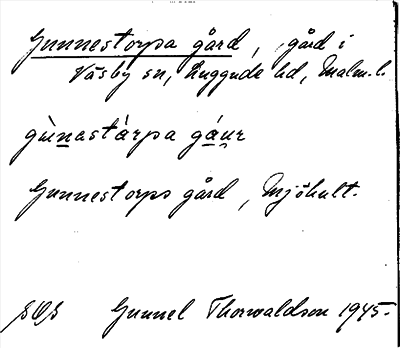 Gunnestorpa gård, gård i
Väsby sn, Luggude hd, Malm. l.
gùnastàrpa gáur
Gunnestorps gård, Mjöhult.
Gunnel Thorwaldson 1945.